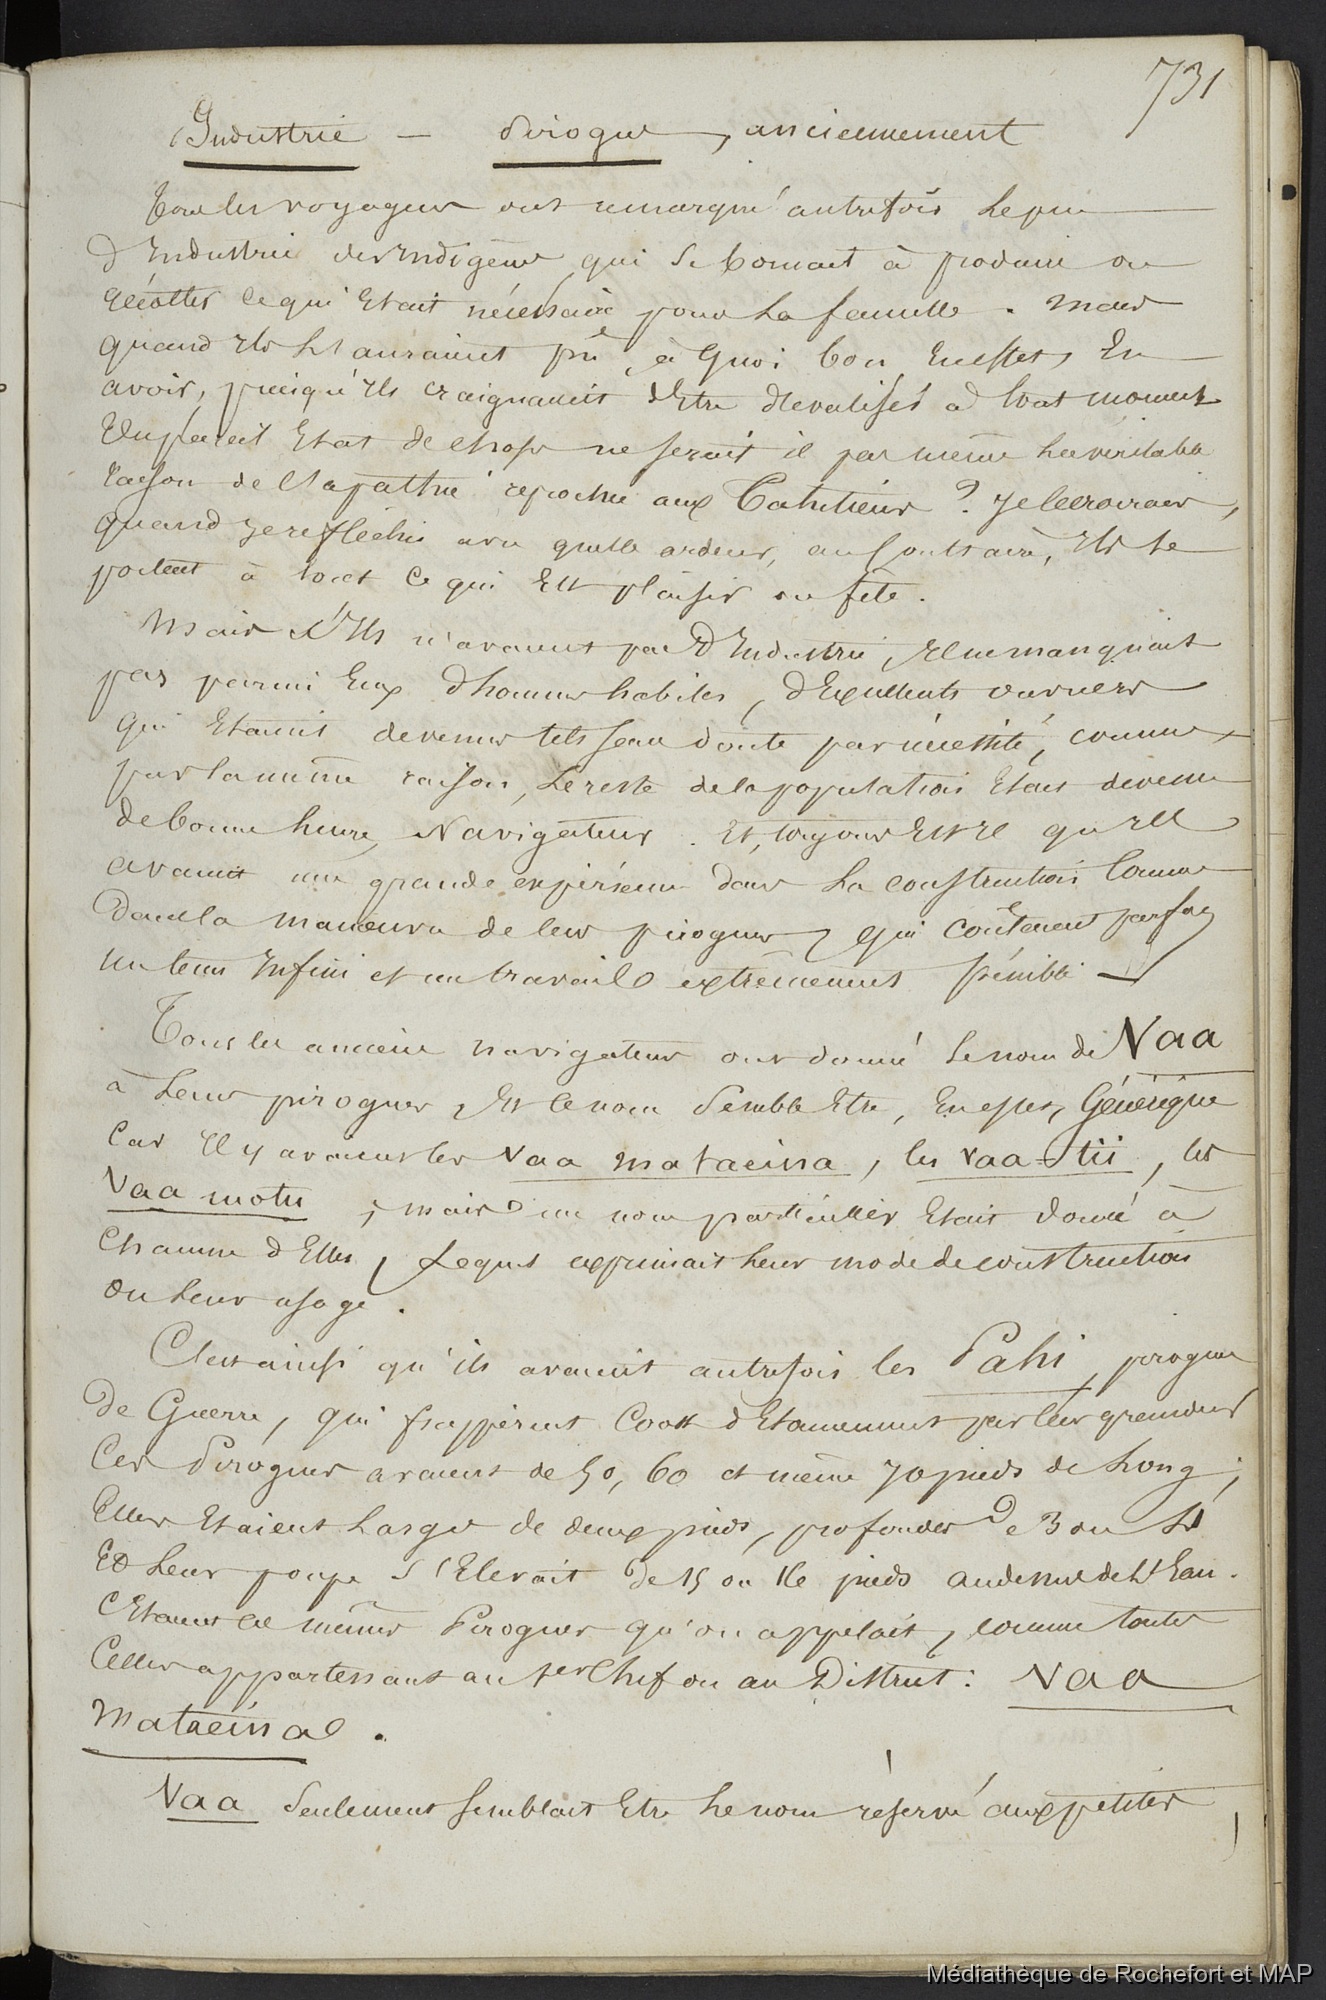 731
Industrie — Pirogue, anciennement
Tous les voyageurs ont remarqué autrefois le peu
d'Industrie des Indigènes qui se bornait à produire ou
récolter ce qui Etait nécessaire pour la famille. Mais
quand Ils l'auraient pu, à quoi bon, En effet, En
avoir, puisqu'Ils craignaient d'Etre dévalisés à tout moment
Un pareil Etat de chose ne serait il pas même la véritable
raison de l'apathie reprochée aux Tahitiens ? Je le croirais,
quand je réfléchis avec quelle ardeur, au Contraire, Ils se
portent à tout ce qui Est plaisir ou fête.
Mais s'Ils n'avaient pas d'Industrie, Il ne manquait
pas parmi Eux d'hommes habiles, d'Excellents ouvriers
qui Etaient devenus tels sans doute par nécessité, comme,
par la même raison, le reste de la population Etait devenu
de bonne heure Navigateur. Et, toujours Est Il qu'Ils
avaient une grande expérience dans la construction Comme
dans la manœuvre de leurs pirogues, qui coûtaient parfois
un tems Infini et un travail extrêmement pénible
Tous les anciens navigateurs ont donné le nom de Vaa
à leurs pirogues, Et ce nom semble Etre, En effet, Générique
Car Il y avait les Vaa mataeina, les vaa-tii, les
Vaa motu ; mais un nom particulier Etait donné à
chacune d'Elles, lequel exprimait leur mode de construction
ou leur usage.
C'est ainsi qu'ils avaient autrefois les Pahi, pirogues
de Guerre, qui frappèrent Cook d'Etonnement par leur grandeur
Ces Pirogues avaient de 50, 60 et même 70 pieds de long ;
Elles Etaient larges de deux pieds, profondes de 3 ou 4
Et leur poupe s'Elevait de 15 ou 16 pieds au dessus de l'Eau.
C'Etaient ces mêmes Pirogues qu'on appelait, comme toutes
Celles appartenant au 1er Chef ou au District : Vaa
Mataeina.
Vaa seulement semblait Etre le nom réservé aux petites
Médiathèque de Rochefort et MAP